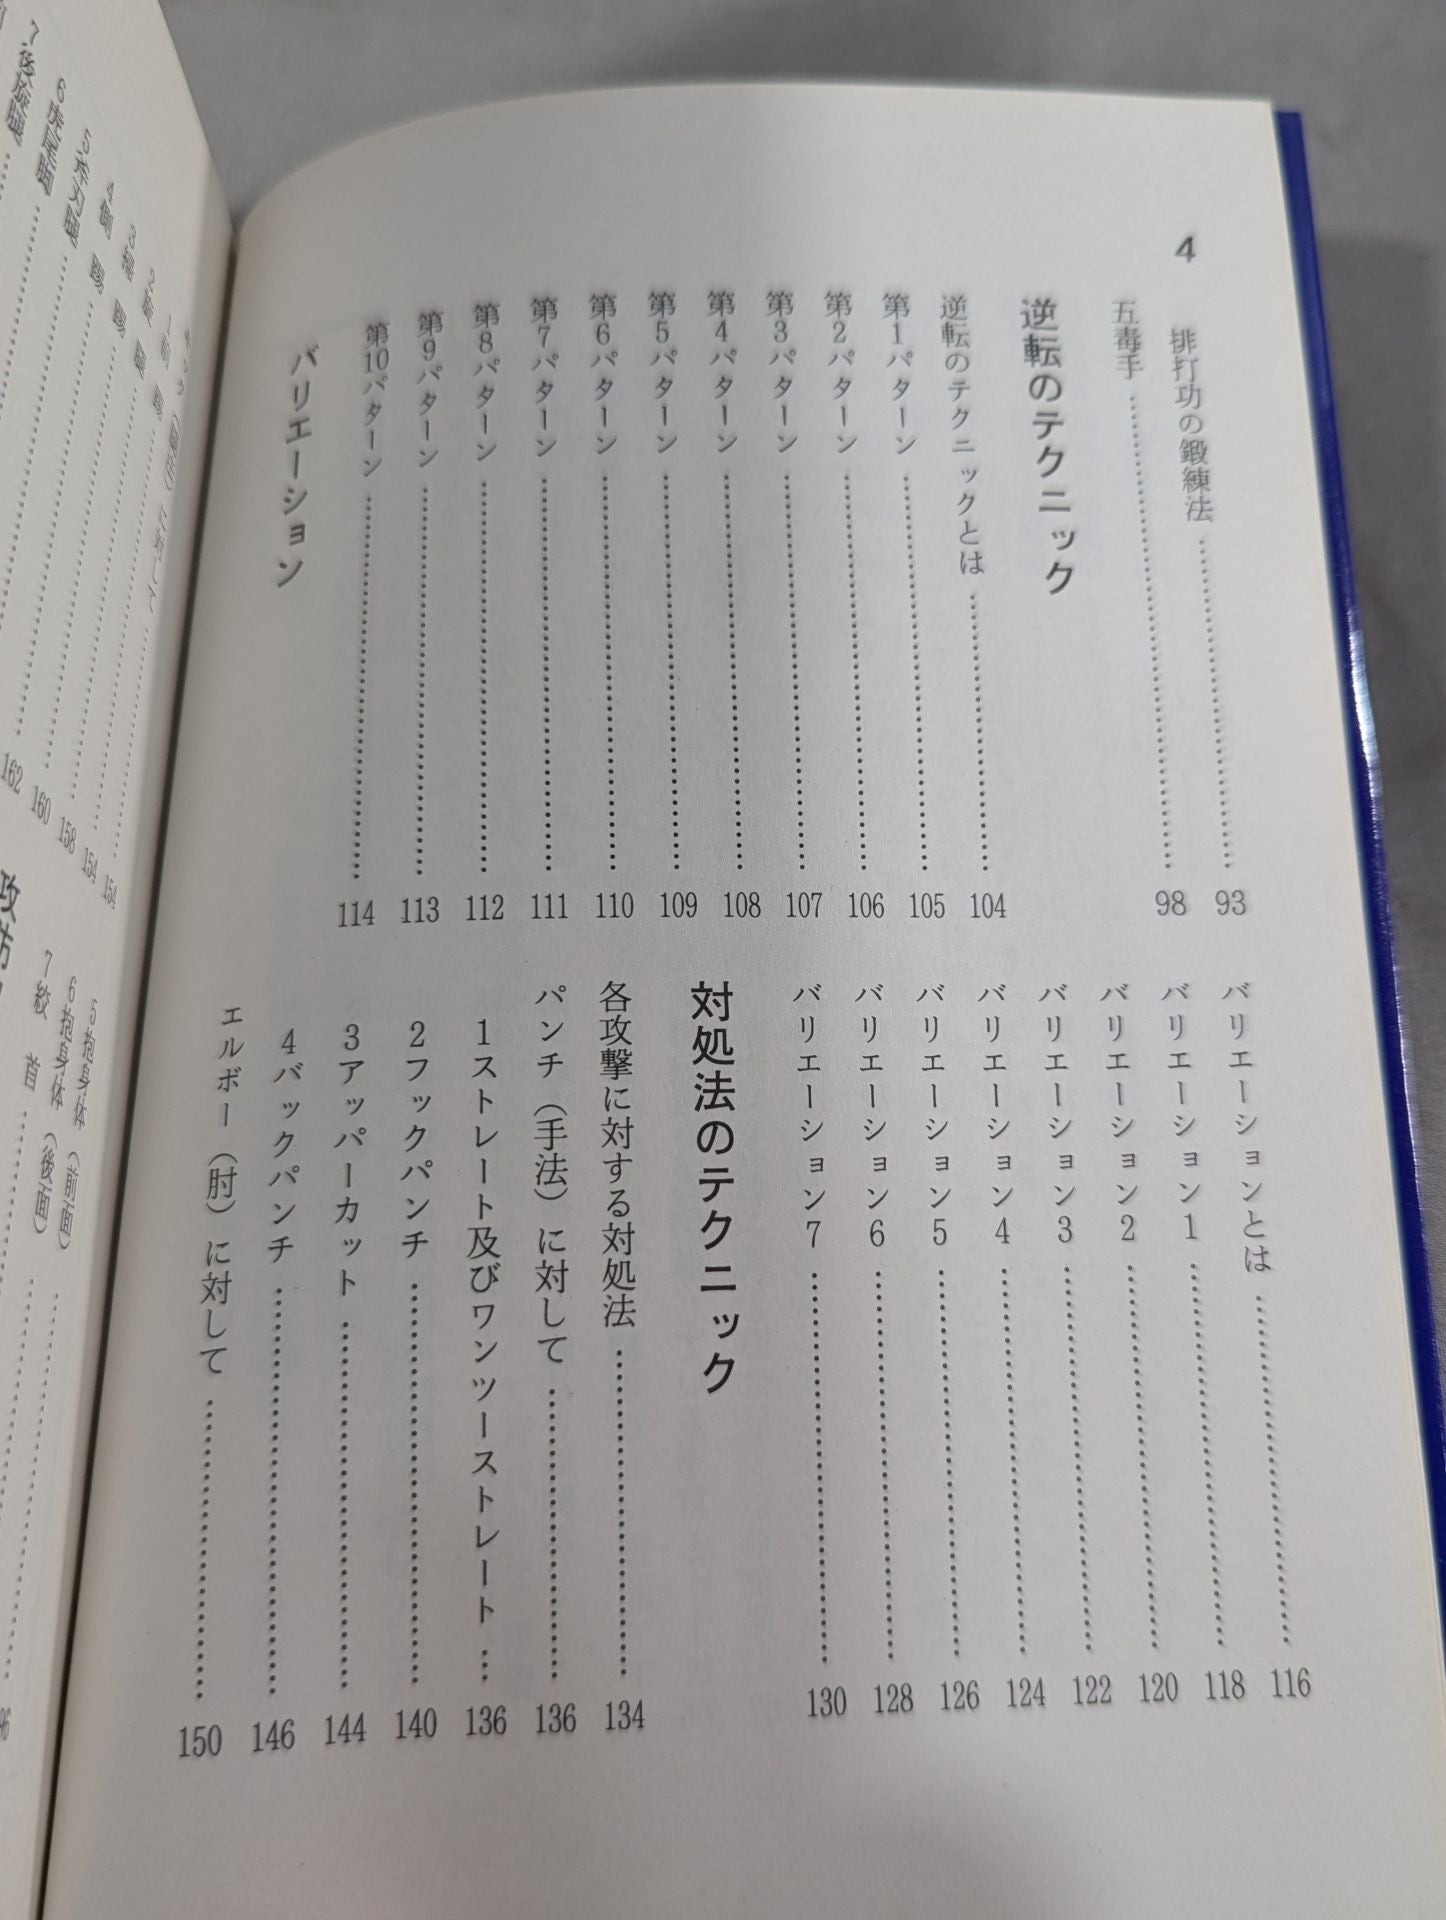 4
排打功の鍛練法……93
五毒手……98
逆転のテクニック
逆転のテクニックとは……104
第1パターン……105
第2パターン……106
第3パターン……107
第4パターン……108
第5パターン……109
第6パターン……110
第7パターン……111
第8パターン……112
第9パターン……113
第10パターン……114
バリエーション
バリエーションとは……116
バリエーション1……118
バリエーション2……120
バリエーション3……122
バリエーション4……124
バリエーション5……126
バリエーション6……128
バリエーション7……130
対処法のテクニック
各攻撃に対する対処法……134
パンチ（手法）に対して……136
1ストレート及びワンツーストレート…136
2フックパンチ……140
3アッパーカット……144
4バックパンチ……146
エルボー（肘）に対して……150
154
154
158
6虎尾脚……160
162
5抱身体（前面）
6抱身体（後面）
7絞首